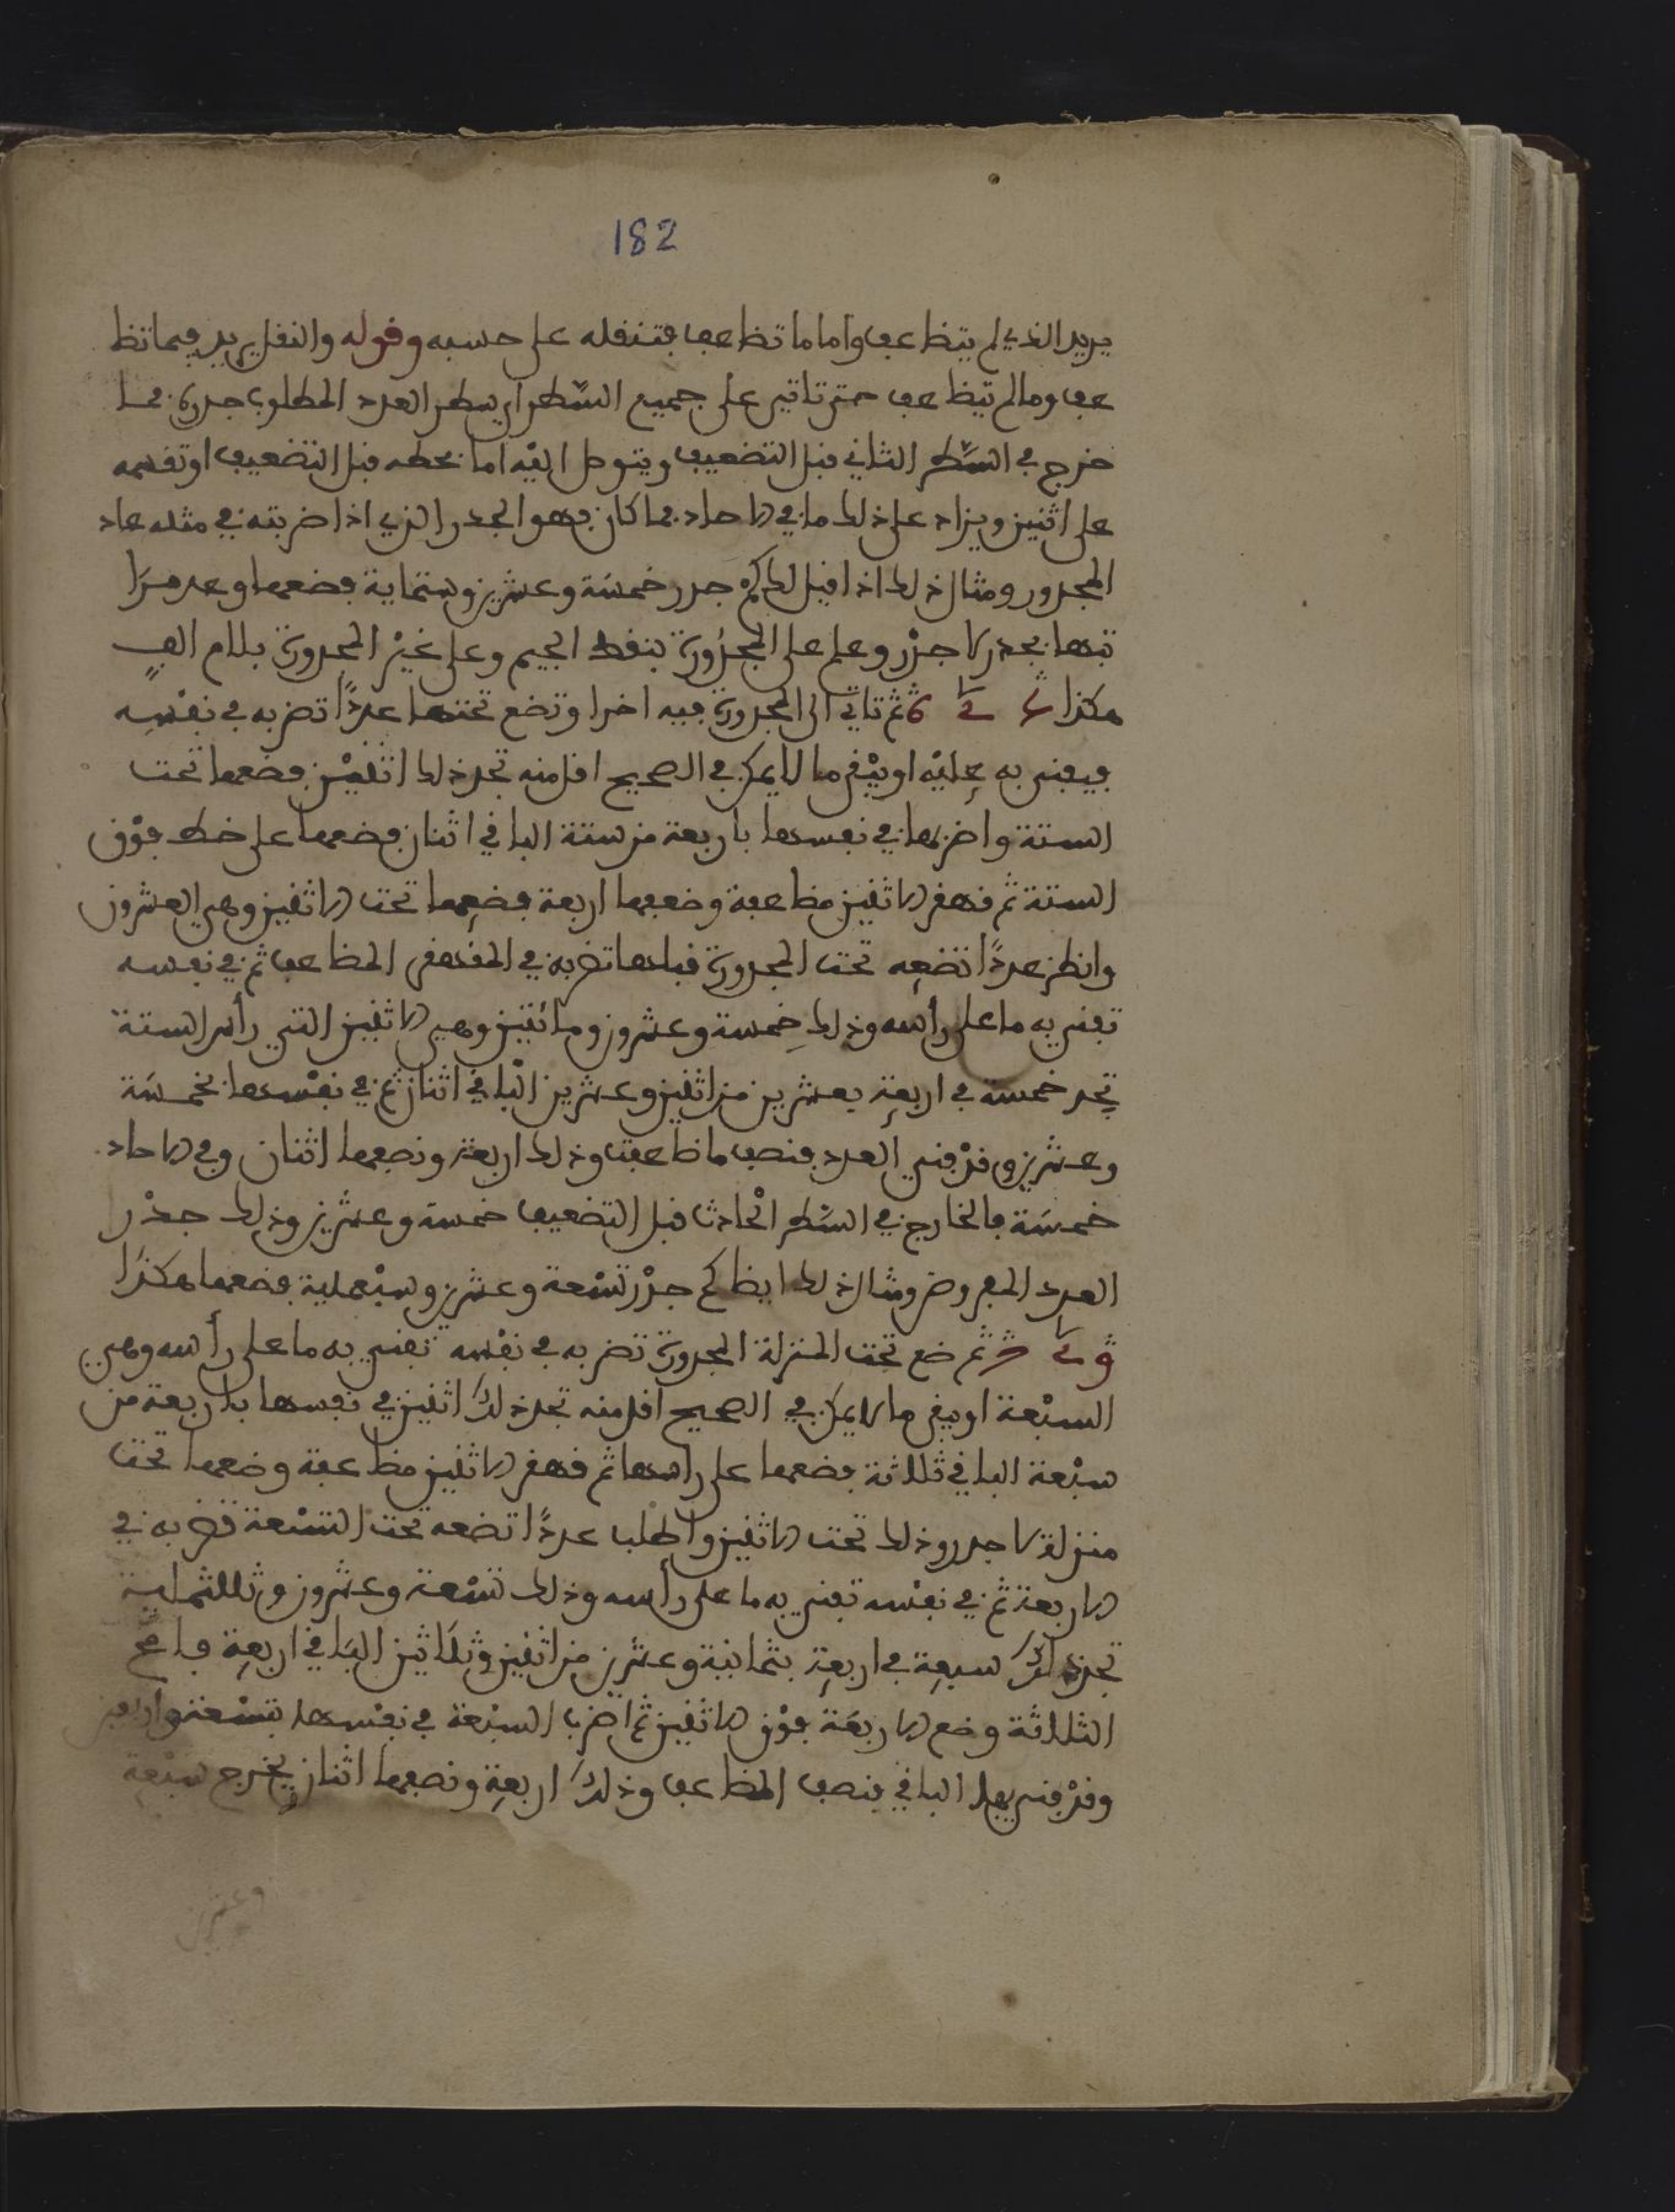 182
يريد الذي لم يتظاعف واما ما تظاعف فتنقله على حسبه وقوله والنقل يريد فيما تظا
عف وما لم يتظاعف حتى تاتي على جميع السّطر اي سطر العدد المطلوب جدره فما
خرج في السّطر الثاني قبل التضعيف ويتوصل اليْه اما بحطه قبل التضعيف او تقسمه
على اثنين ويزاد على ذلك ما في الاحاد فما كان فهو الجدر الذي اذا ضربته في مثله عاد
المجدور ومثال ذلك اذا قيل لك كم جدر خمسَة وعشرين وستماية فضعها وعد مرَا
تبها بجدر لا جذر وعلم على المجذورة بنقط الجيم وعلى غيْر المجدورة بلام الفٍ
هكذا ثم تاتي الى المجدورة فيه اخرا وتضع تحتها عددًا تضربه في نفْسِه
فيفنى به عليْه او يبْقى ما لا يمكن في الصحيح اقل منه تجد ذلك اثنيْن فضعها تحت
الستة واضربها في نفسها باربعة من ستة الباقي اثنان فضعها على خط فوْق
الستة ثم قهقر الاثنين مظاعفة وضعفها اربعة فضعها تحت الاثنين وهي العشرون
وانظر عددًا تضعه تحت المجدورة قبلها تضربه في المقهقر المظاعف ثم في نفسه
تفني به ما على رأسه وذلك خمسة وعشرون ومائتين وهي الاثنين التي رأس الستة
تجد خمسة في اربعةٍ بعشرين من اثنين وعشرين الباقي اثنان ثم في نفْسها بخمسَة
وعشرين وقدْ فني العدد فنصف ما ظاعفت وذلك اربعة ونصفها اثنان وفي الاحاد
خمسَة فالخارج في السّطر الحادث قبل التضعيف خمسة وعشرين وذلك جدْر
العدد المفروض ومثال ذلك ايظا كم جدْر تسْعة وعشرين وسبْعماية فضعها هكذَا
ثم ضع تحت المنزلة المجدورة تضربه في نفْسه تفني به ما على رأسه وهي
السبْعة او يبقى ما لا يمكن في الصحيح اقل منه تجد ذلكَ اثنين في نفسها باربعة من
سبْعة الباقي ثلاثة فضعها على راسها ثم قهقر الاثنين مظاعفة وضعها تحت
منزلة لا جدر وذلك تحت الاثنين واطلب عددًا تضعه تحت التسْعة تضربه في
الاربعة ثم في نفْسه تفني به ما على رأسه وذلك تسْعة وعشرون وثلاثماية
تجد ذلكَ سبعة في اربعةٍ بثمانية وعشرين من اثنين وثلَاثين البَاقي اربعةِ فامح
الثلاثة وضع الاربعَة فوْق الاثنين ثم اضرب السبْعة في نفْسها بتسْعة واربعين
وقدْ فني بها الباقي فنصف المظاعف وذلكَ اربعةٍ ونصفها اثنان يخرج سبْعة
وعشرين